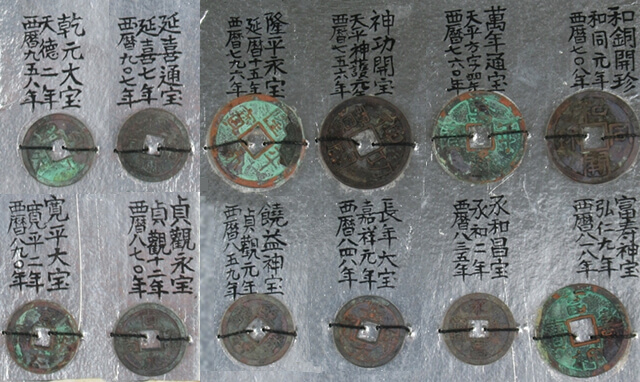 和銅開珍
和同元年
西暦七〇八年
萬年通宝
天平方字四年
西暦七六〇年
神功開宝
天平神護元年
西暦七六五年
隆平永宝
延暦十五年
西暦七九六年
延喜通宝
延喜七年
西暦九〇七年
乾元大宝
天徳二年
西暦九五八年
富寿神宝
弘仁九年
西暦八一八年
承和昌宝
承和二年
西暦八三五年
長年大宝
嘉祥元年
西暦八四八年
饒益神宝
貞観元年
西暦八五九年
貞観永宝
貞観十二年
西暦八七〇年
寛平大宝
寛平二年
西暦八九〇年